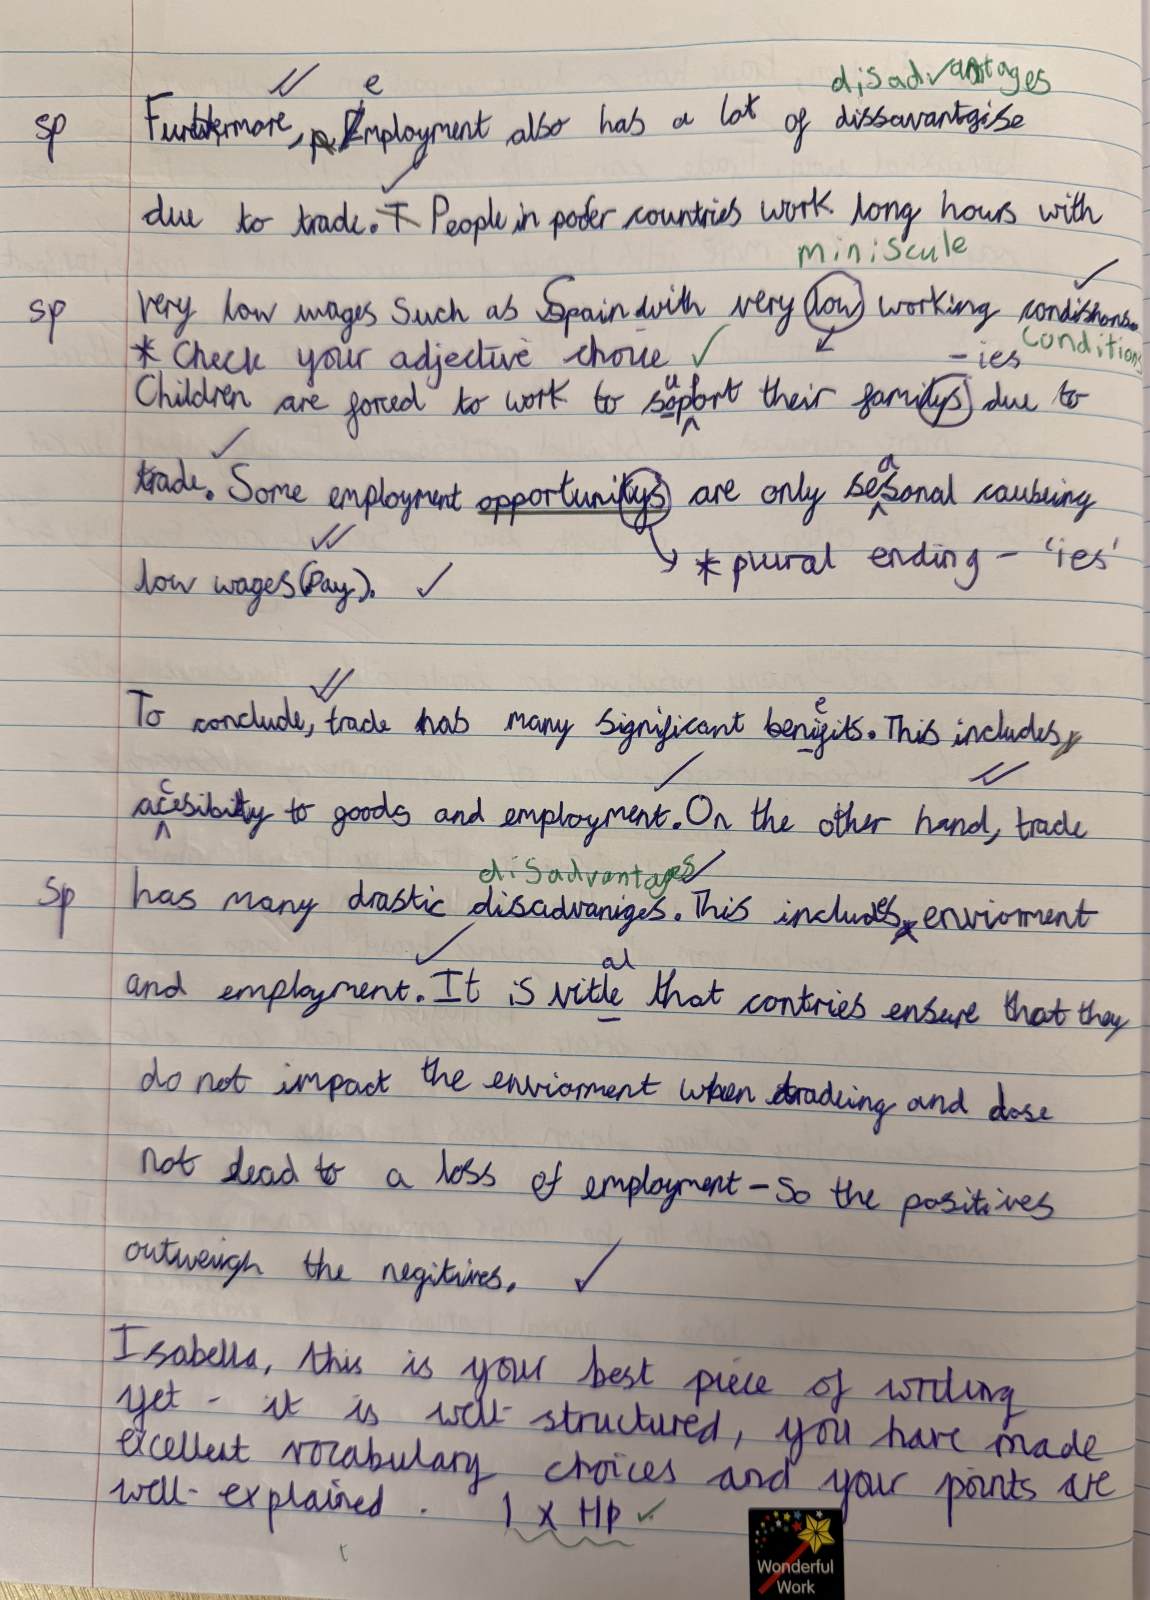 disadvantages
e
sp Furthermore, Employment also has a lot of dissavantgise
due to trade. T People in poder countries work long hours with
miniscule
sp very low wages such as Spain with very low working condishons.
conditions
* Check your adjective choice
-ies
u p
Children are forced to work to soport their familys due to
a
trade. Some employment opportunitys are only sesonal causeing
* plural ending - 'ies'
low wages (Pay).
e
To conclude, trade has many significant benifits. This includes,
c
acesibility to goods and employment. On the other hand, trade
disadvantages
Sp has many drastic disadvaniges. This includes enviorment
al
and employment. It is vitle that contries ensure that they
do not impact the enviorment when tradeing and dose
not lead to a loss of employment - So the positives
outweigh the negitives.
Isabella, this is your best piece of writing
yet - it is well-structured, you have made
excellent vocabulary choices and your points are
well-explained. 1 x Hp
Wonderful
Work